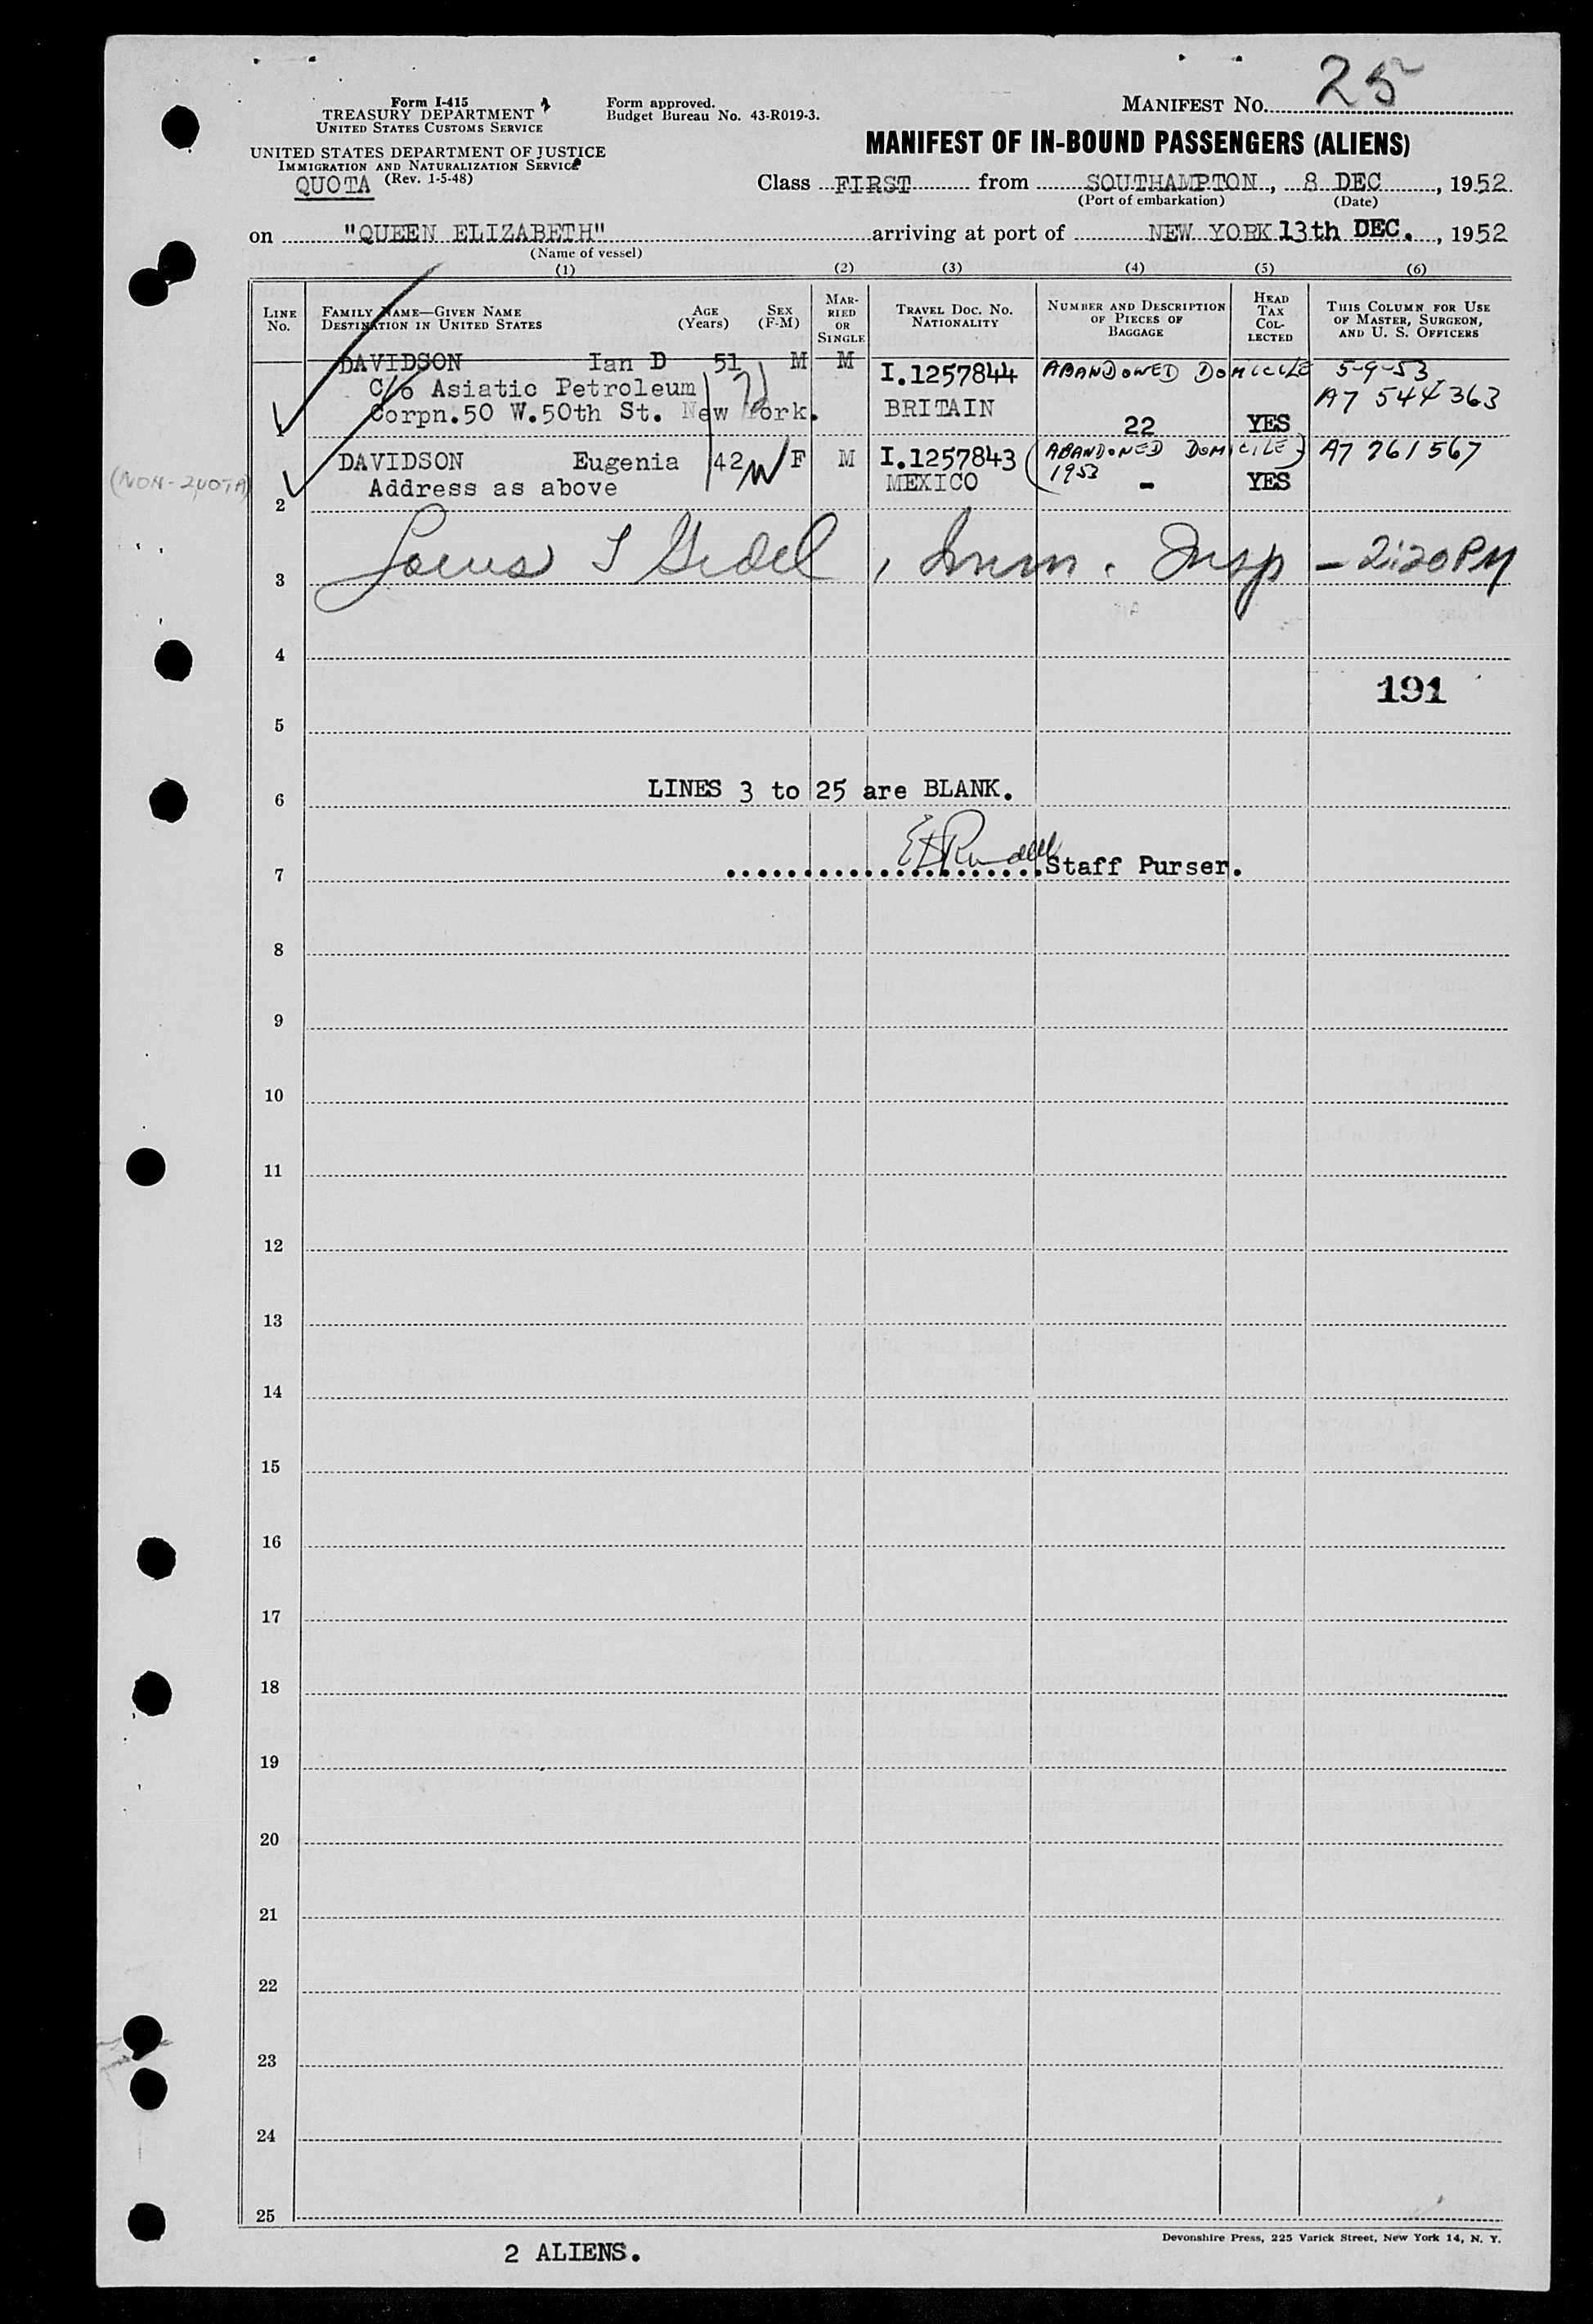 25
Form I-415
TREASURY DEPARTMENT
UNITED STATES CUSTOMS SERVICE
Form approved.
Budget Bureau No. 43-R019-3.
MANIFEST NO.
UNITED STATES DEPARTMENT OF JUSTICE
IMMIGRATION AND NATURALIZATION SERVICE
(Rev. 1-5-48)
QUOTA
MANIFEST OF IN-BOUND PASSENGERS (ALIENS)
Class FIRST from SOUTHAMPTON, 8 DEC, 1952
(Port of embarkation) (Date)
on "QUEEN ELIZABETH" arriving at port of NEW YORK 13th DEC., 1952
(Name of vessel)
(1) (2) (3) (4) (5) (6)
LINE No.
FAMILY NAME—GIVEN NAME
DESTINATION IN UNITED STATES
AGE (Years)
SEX (F-M)
MARRIED OR SINGLE
TRAVEL DOC. NO. NATIONALITY
NUMBER AND DESCRIPTION OF PIECES OF BAGGAGE
HEAD TAX COLLECTED
THIS COLUMN FOR USE OF MASTER, SURGEON, AND U. S. OFFICERS
DAVIDSON Ian D 51 M M I.1257844 ABANDONED DOMICILE 5-9-53
C/o Asiatic Petroleum A7 544 363
Corpn.50 W.50th St. New York. BRITAIN 22 YES
1
DAVIDSON Eugenia 42 W F M I.1257843 (ABANDONED DOMICILE) A7 761 567
(NON-QUOTA) Address as above MEXICO 1953 - YES
2
3 , Imm. Insp - 2:20 PM
4
191
5
LINES 3 to 25 are BLANK.
6
7 Staff Purser.
8
9
10
11
12
13
14
15
16
17
18
19
20
21
22
23
24
25
Devonshire Press, 225 Varick Street, New York 14, N. Y.
2 ALIENS.